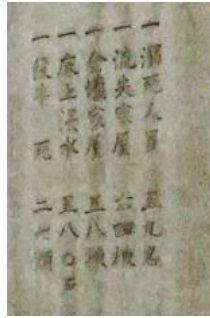 一 溺死人員 五九名
一 流失家屋 六四棟
一 全壊家屋 五八棟
一 床上浸水 五八〇戸
一 斃牛 死 二七頭